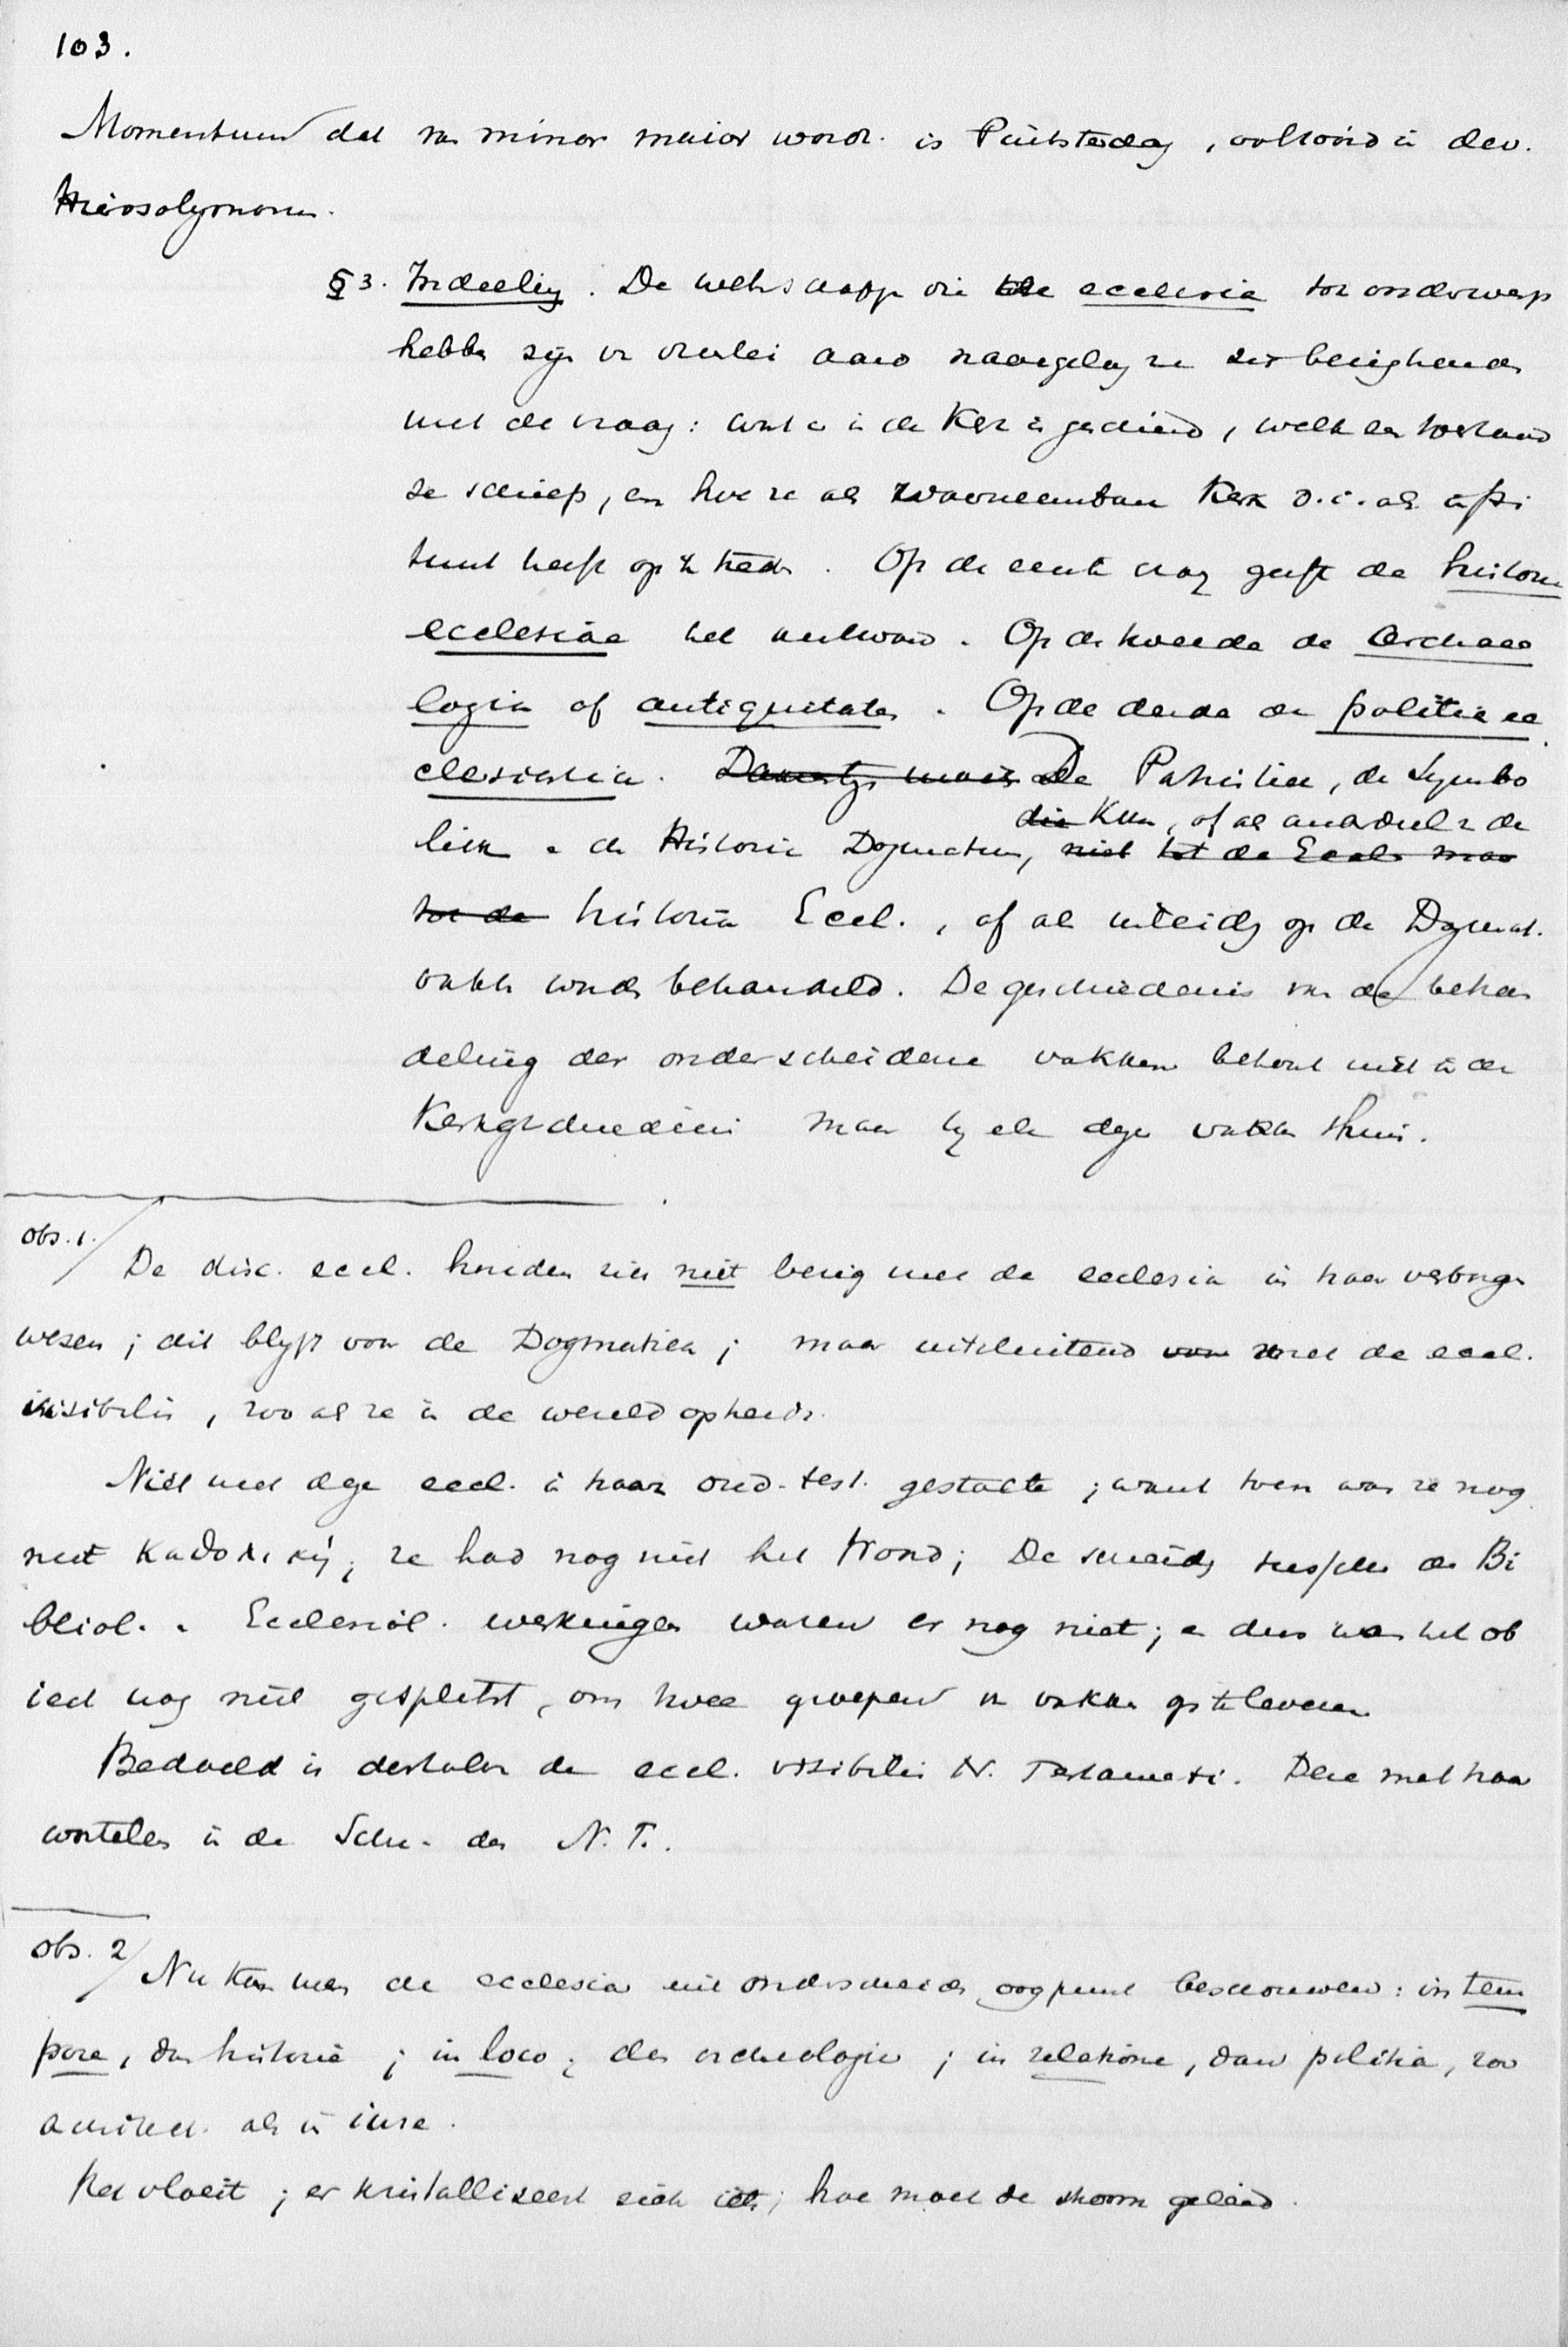 103.
Momentum dat van minor maior wordt is Pinksterdag, voltooid in dev.
Hierosolymorum.
§ 3. Indeeling. De wetenschappen die de ecclesia tot onderwerp
hebben zijn van drieërlei aard naargelang ze zich bezighouden
met de vraag: wat er in de Kerk is geschied, welken toestand
ze schiep, en hoe ze als waarneembare Kerk d.i. als insti
tuut heeft op te treden. Op de eerste vraag geeft de historia
ecclesiae het antwoord. Op de tweede de Archaeo
logia of antiquitates. Op de derde de politia ec
clesiastica. De Patristiek, de Symbo
die Kun, of als onderdeel v de
liek en de Historia Dogmatum, niet tot de Eccles maar
tot de historia Eccl., of als inleiding op de Dogmat.
vakken worden behandeld. De geschiedenis van de behan
deling der onderscheidene vakken behoort niet in de
Kerkgeschiedenis maar bij elk dezer vakken thuis.
obs. 1. De disc. eccl. houden zich niet bezig met de ecclesia in haar verborgen
wezen; dit blijft voor de Dogmatiek; maar uitsluitend voor met de eccl.
visibilis, zooals ze in de wereld optreedt.
Niet met deze eccl. in haar oud-test. gestalte; want toen was ze nog
niet καθολική; ze had nog niet het Woord; De scheiding tusschen de Bi
bliol. en Ecclesiol. werkingen waren er nog niet; en dus was het ob
iect nog niet gesplitst, om twee groepen van vakken op te leveren
Bedoeld is derhalve de eccl. visibilis N. Testamenti. Deze met haar
wortelen in de Schr. des N. T.
obs. 2 Nu kan men de ecclesia uit onderscheiden oogpunt beschouwen: in tem
pore, dan historie; in loco; dan archeologie; in relatione, dan politia, zoo
als in iure.
Het vloeit; er kristalliseert zich iets; hoe moet de stroom geleid.